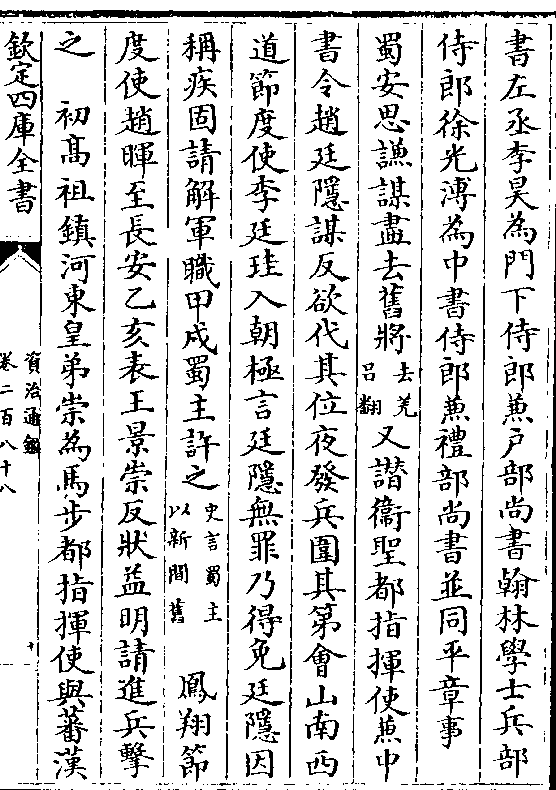 書左丞李昊為門下侍郎兼戶部尚書翰林學士兵部
侍郎徐光溥為中書侍郎兼禮部尚書並同平章事
蜀安思謙謀盡去舊將去羌呂翻又譖衛聖都指揮使兼中
書令趙廷隱謀反欲代其位夜發兵圍其第會山南西
道節度使李廷珪入朝極言廷隱無罪乃得免廷隱因
稱疾固請解軍職甲戌蜀主許之史言蜀主以新間舊 鳳翔節
度使趙暉至長安乙亥表王景崇反狀益明請進兵擊
之 初高祖鎮河東皇弟崇為馬步都指揮使與蕃漢
欽定四庫全書
資治通鑑
卷二百八十八
十